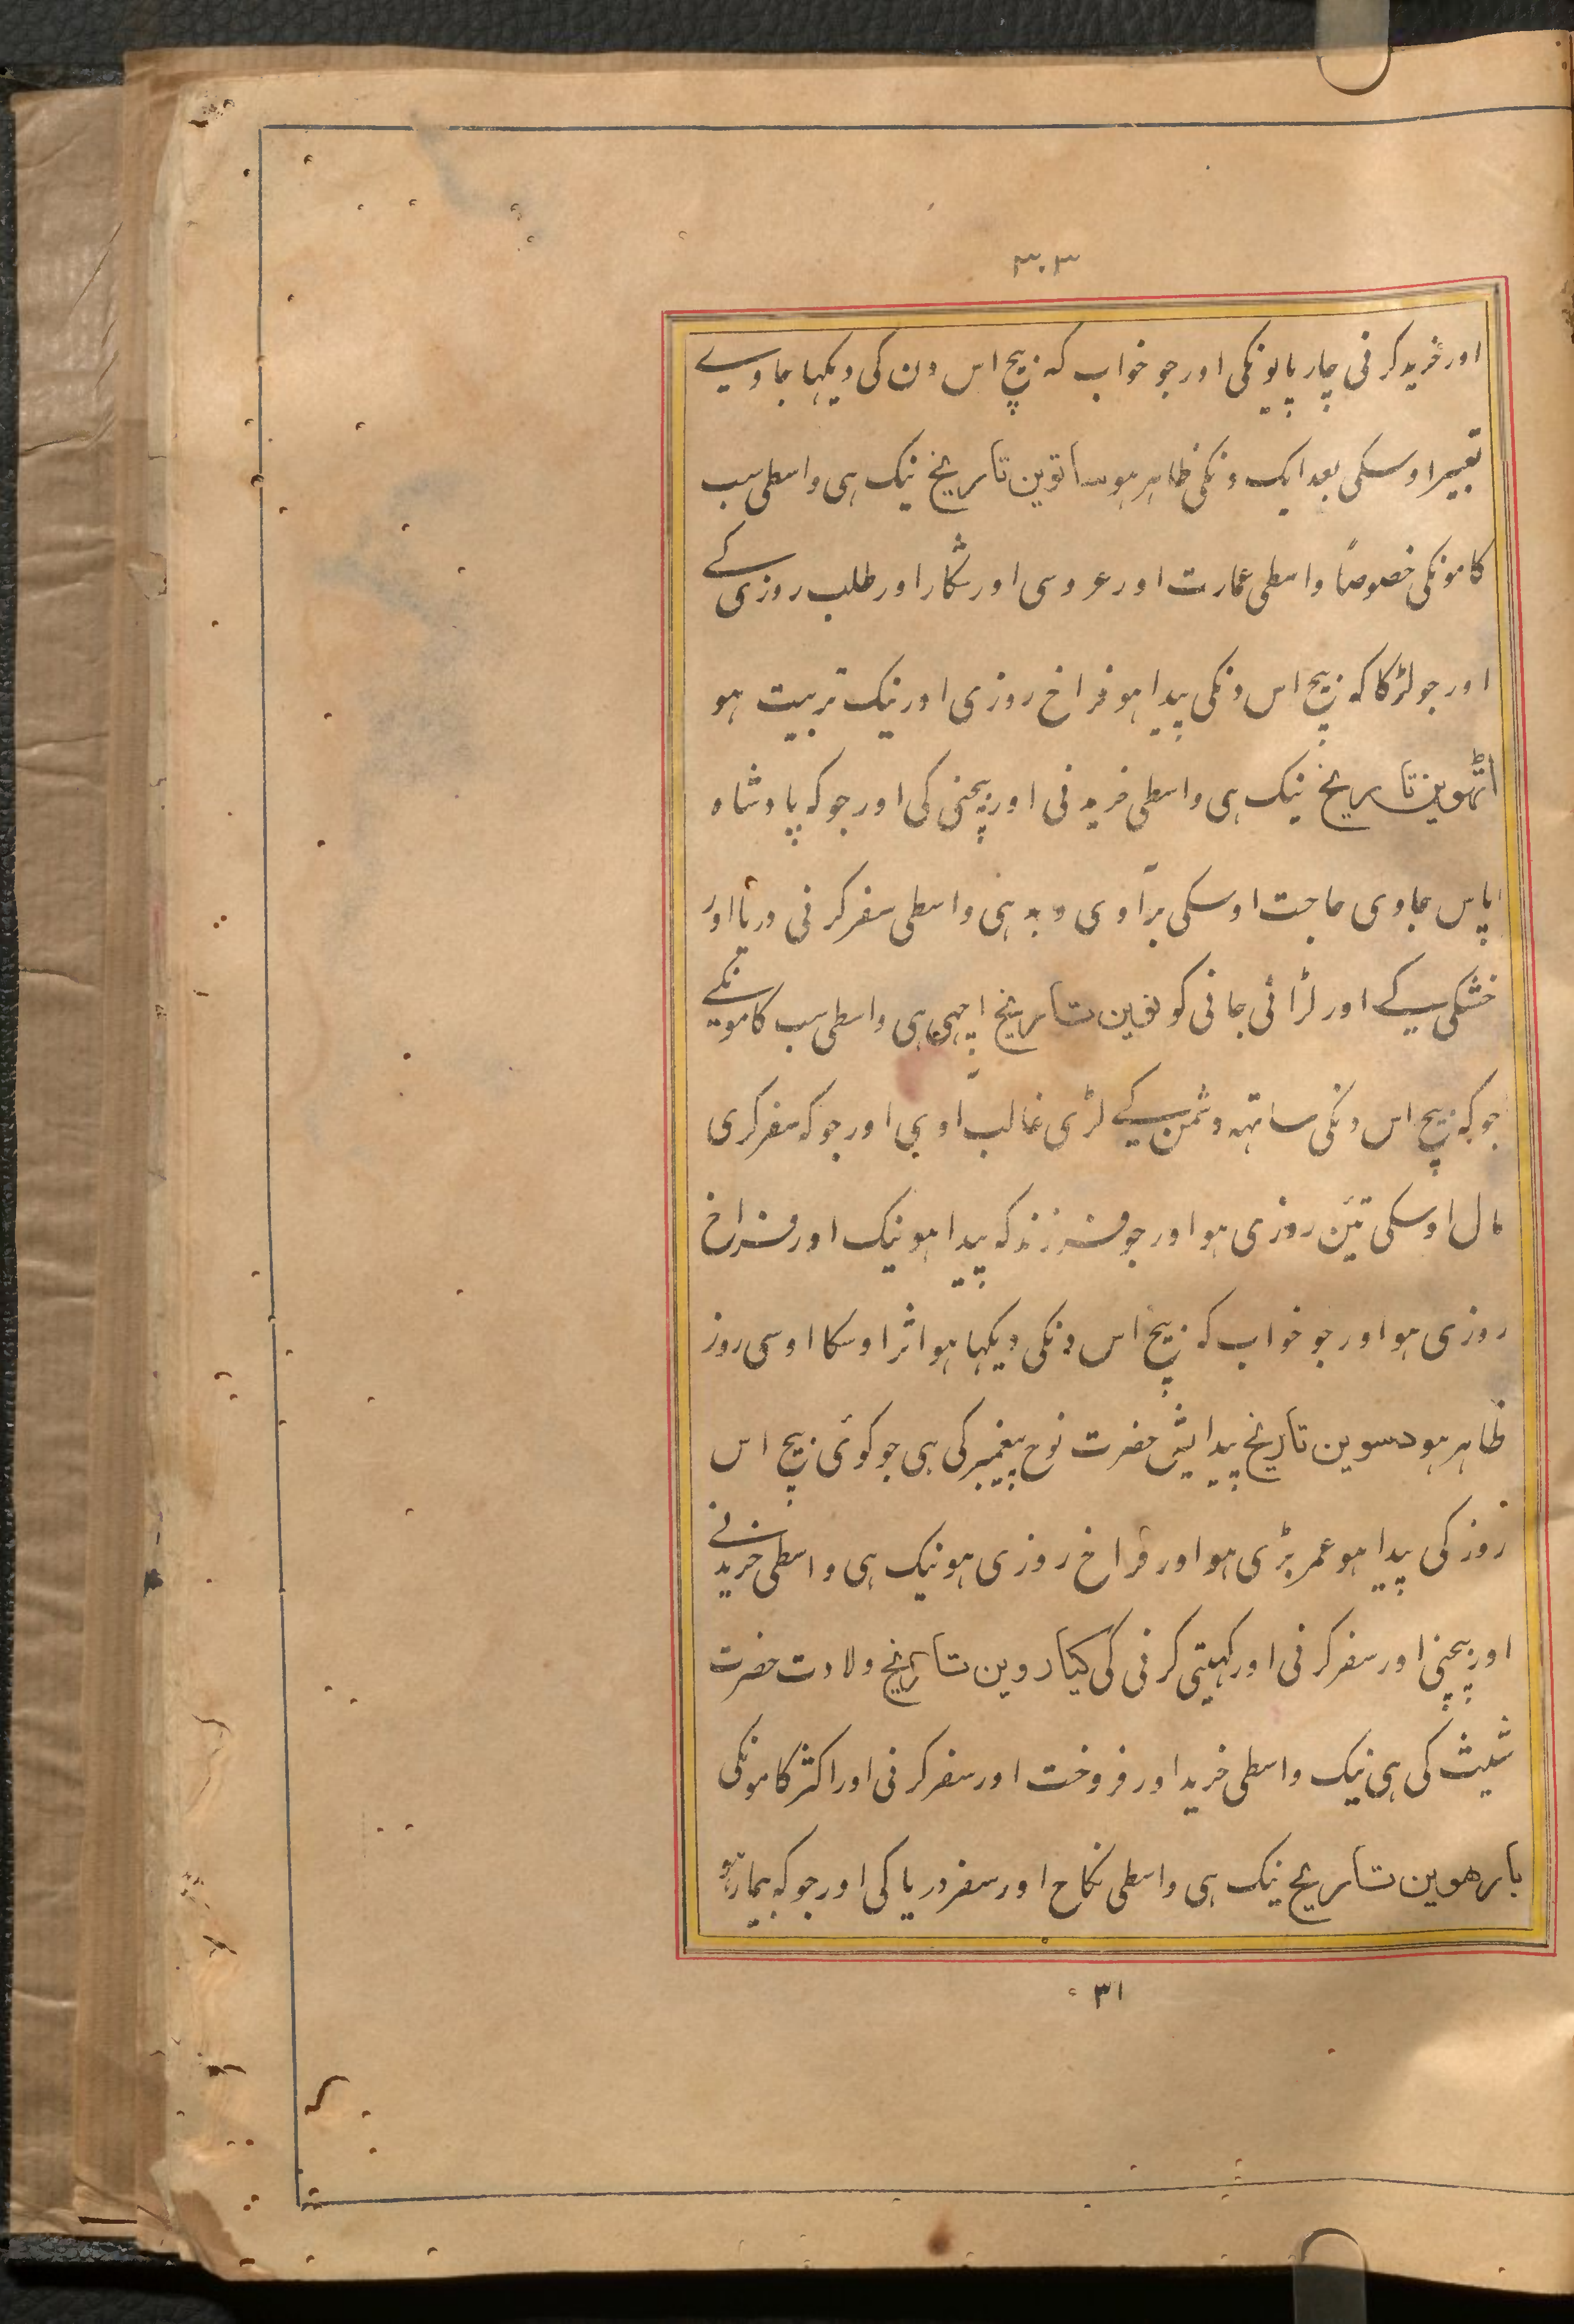 ۳۰۳
اور خرید کرنی چارپایونکی اور جو خواب کہ بیچ اس دن کی دیکہا جاوے
تعبیر اوسکی بعد ایک دنکی ظاہر ہو ساتوین تاریخ نیک ہی واسطی سب
کامونکی خصوصاً واسطی عمارت اور عروسی اور شکار اور طلب روزی کے
اور جو لڑکا کہ بیچ اس دنکی پیدا ہو فراخ روزی اور نیک تربیت ہو
اٹہوین تاریخ نیک ہی واسطی خریدنی اور بیچنی کی اور جو کہ پادشاہ
پاس جاوی حاجت اوسکی برآوی و بد ہی واسطی سفر کرنی دریا اور
خشکی کے اور لڑائی جانی کو نوین تاریخ اچہی ہی واسطی سب کامونکے
جو کہ بیچ اس دنکی ساتہہ دشمن کے لڑی غالب آوی اور جو کہ سفر کری
مال اوسکی تئین روزی ہو اور جو فرزند کہ پیدا ہو نیک اور فراخ
روزی ہو اور جو خواب کہ بیچ اس دنکی دیکہا ہو اثر اوسکا اوسی روز
ظاہر ہو دسوین تاریخ پیدایش حضرت نوح پیغمبر کی ہی جو کوئی بیچ اس
روز کی پیدا ہو عمر بڑی ہو اور فراخ روزی ہو نیک ہی واسطی خریدنے
اور بیچنی اور سفر کرنی اور کہیتی کرنی کی گیاروین تاریخ ولادت حضرت
شیث کی ہی نیک واسطی خرید اور فروخت اور سفر کرنی اور اکثر کامونکی
بارھوین تاریخ نیک ہی واسطی نکاح اور سفر دریا کی اور جو کہ بیمار ہو
۳۱